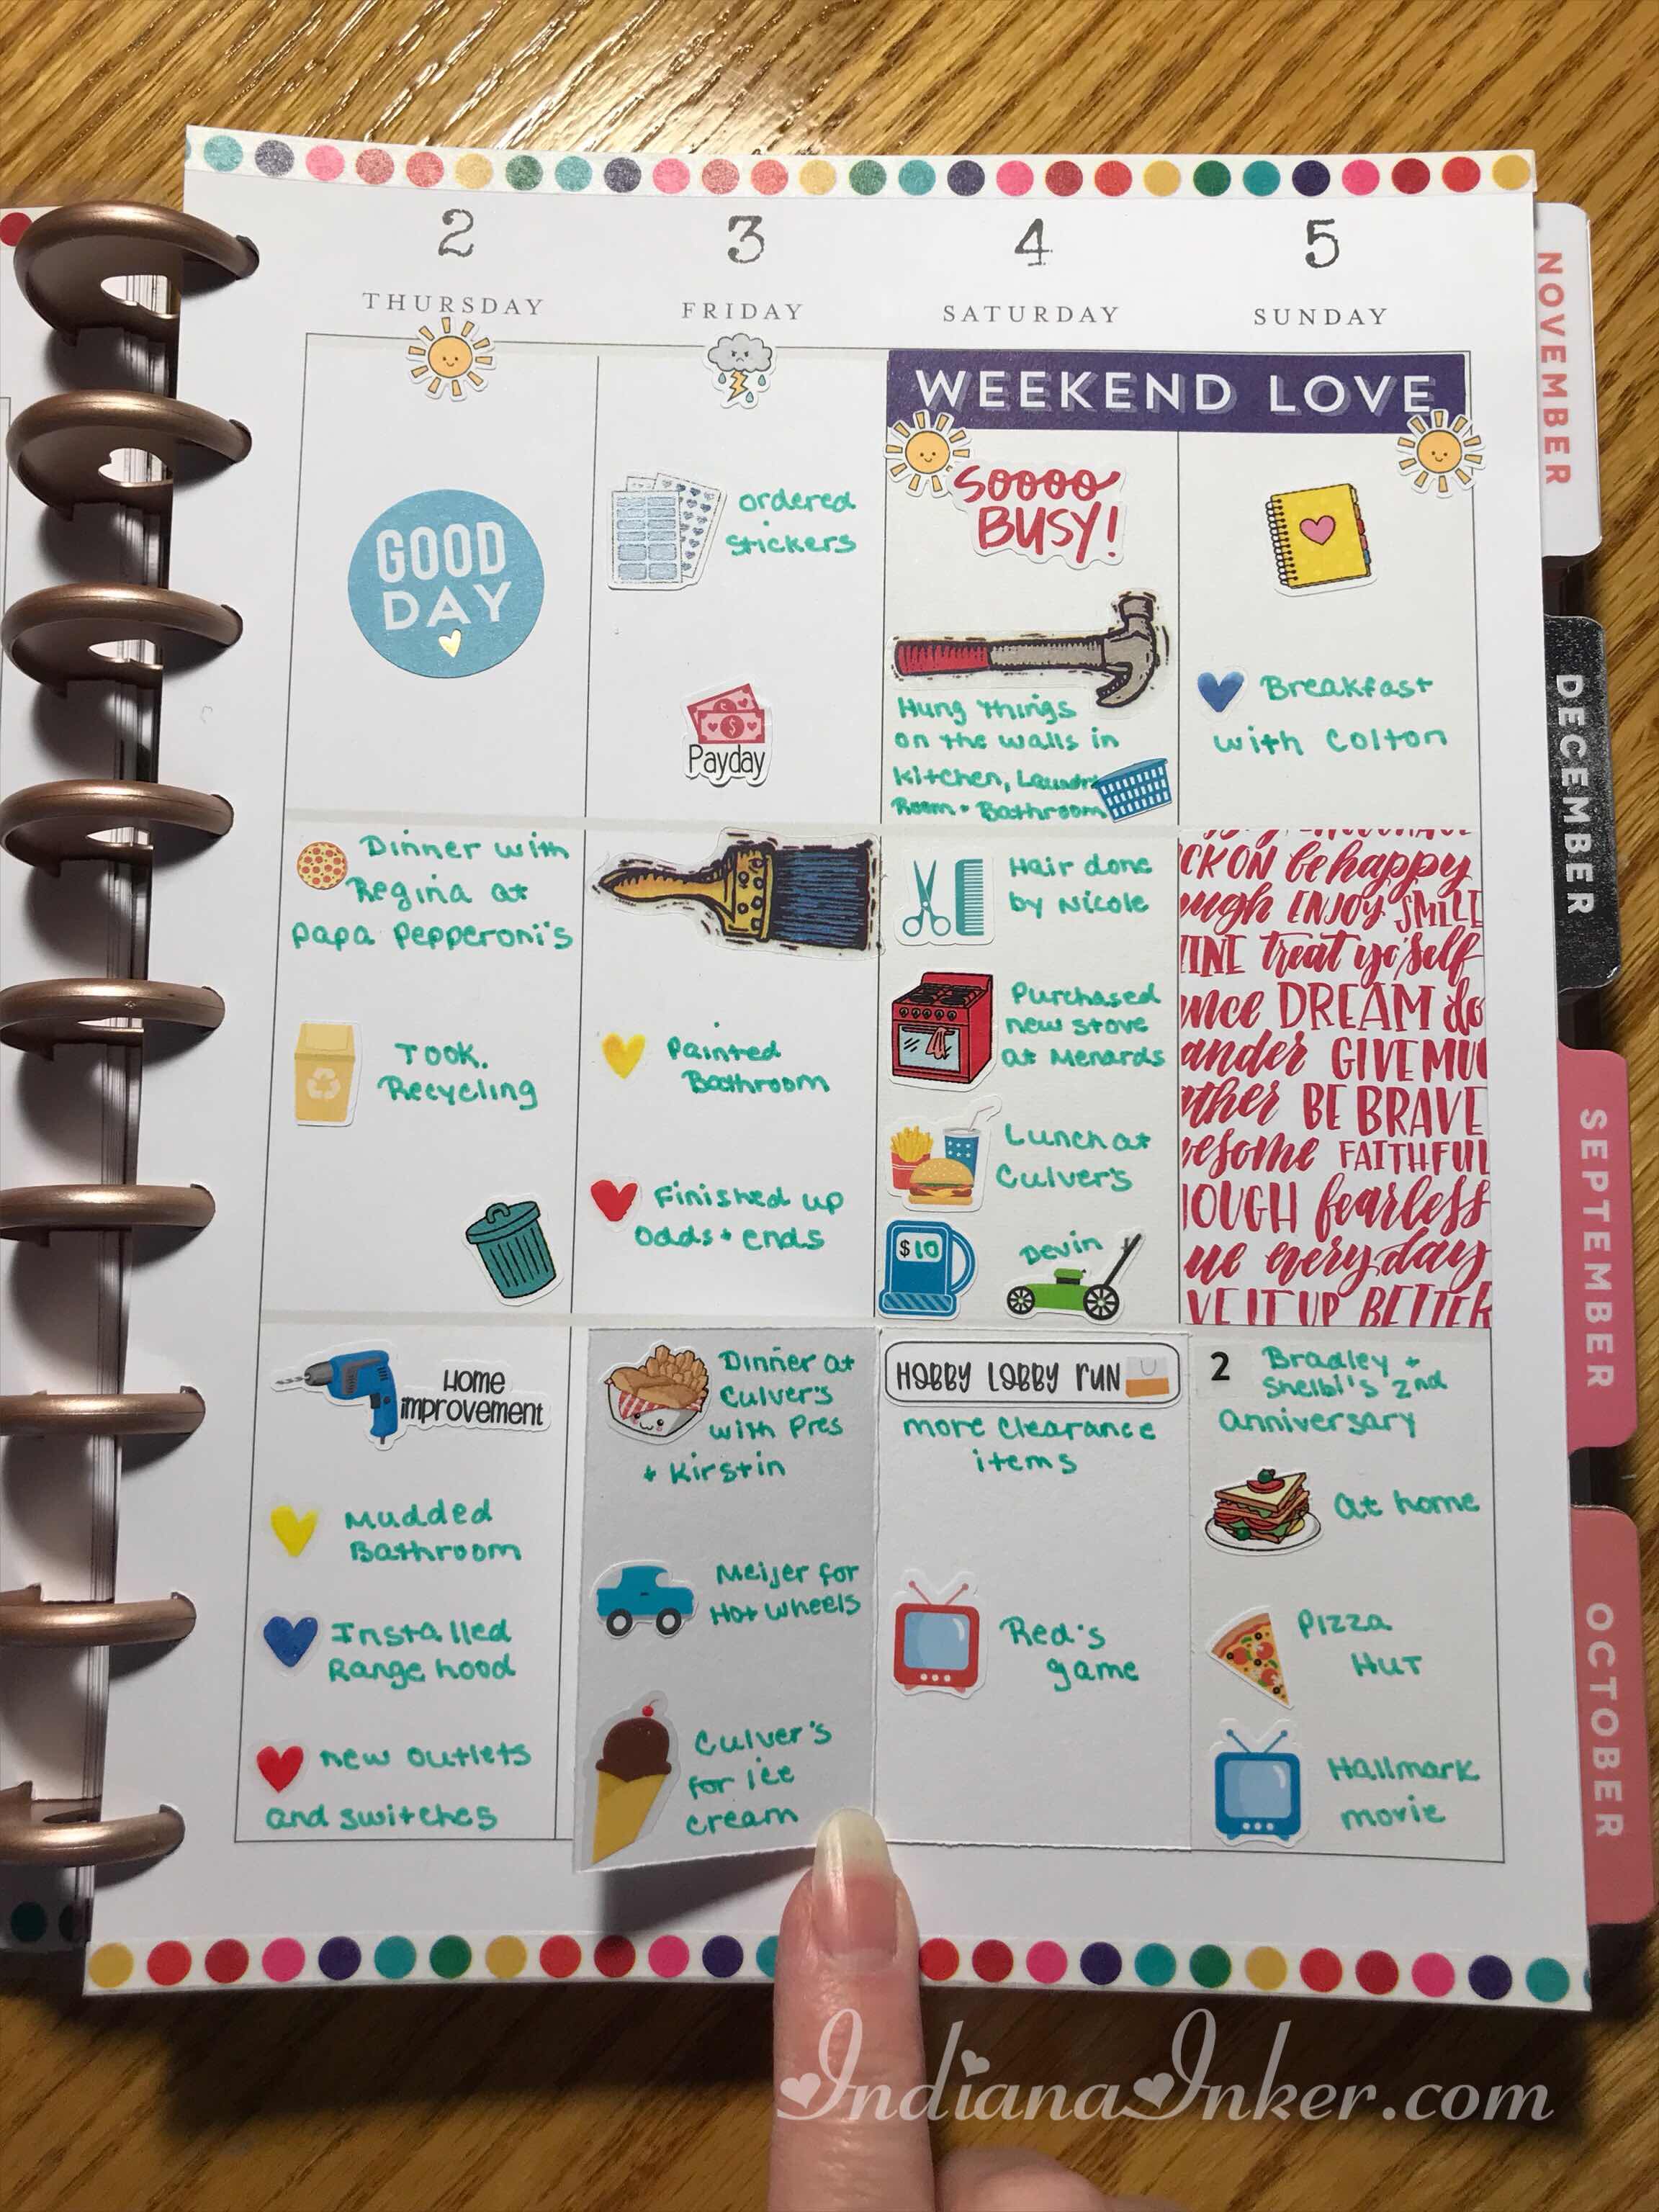 2
THURSDAY
GOOD
DAY
Dinner with
Regina at
Papa Pepperoni's
Took
Recycling
Home
improvement
Mudded
Bathroom
Installed
Range hood
new outlets
and switches
3
FRIDAY
ordered
stickers
Payday
Painted
Bathroom
Finished up
odds + ends
Dinner at
Culver's
with Pres
+ Kirstin
Meijer for
Hot wheels
Culver's
for ice
cream
4
SATURDAY
WEEKEND LOVE
SOOOO
BUSY!
Hung things
on the walls in
kitchen, Laundry
Room + Bathroom
Hair done
by Nicole
Purchased
new stove
at Menards
Lunch at
Culver's
$10
Devin
HOBBY LOBBY RUN
more clearance
items
Red's
game
5
SUNDAY
Breakfast
with Colton
CK ON be happy
ugh ENJOY SMILE
INE treat yo'self
nce DREAM do
ander GIVE MU
ther BE BRAVE
esome FAITHFUL
OUGH fearless
ue everyday
VE IT UP BETTER
2
Bradley +
Shelbi's 2nd
anniversary
at home
Pizza
Hut
Hallmark
movie
NOVEMBER
DECEMBER
SEPTEMBER
OCTOBER
IndianaInker.com